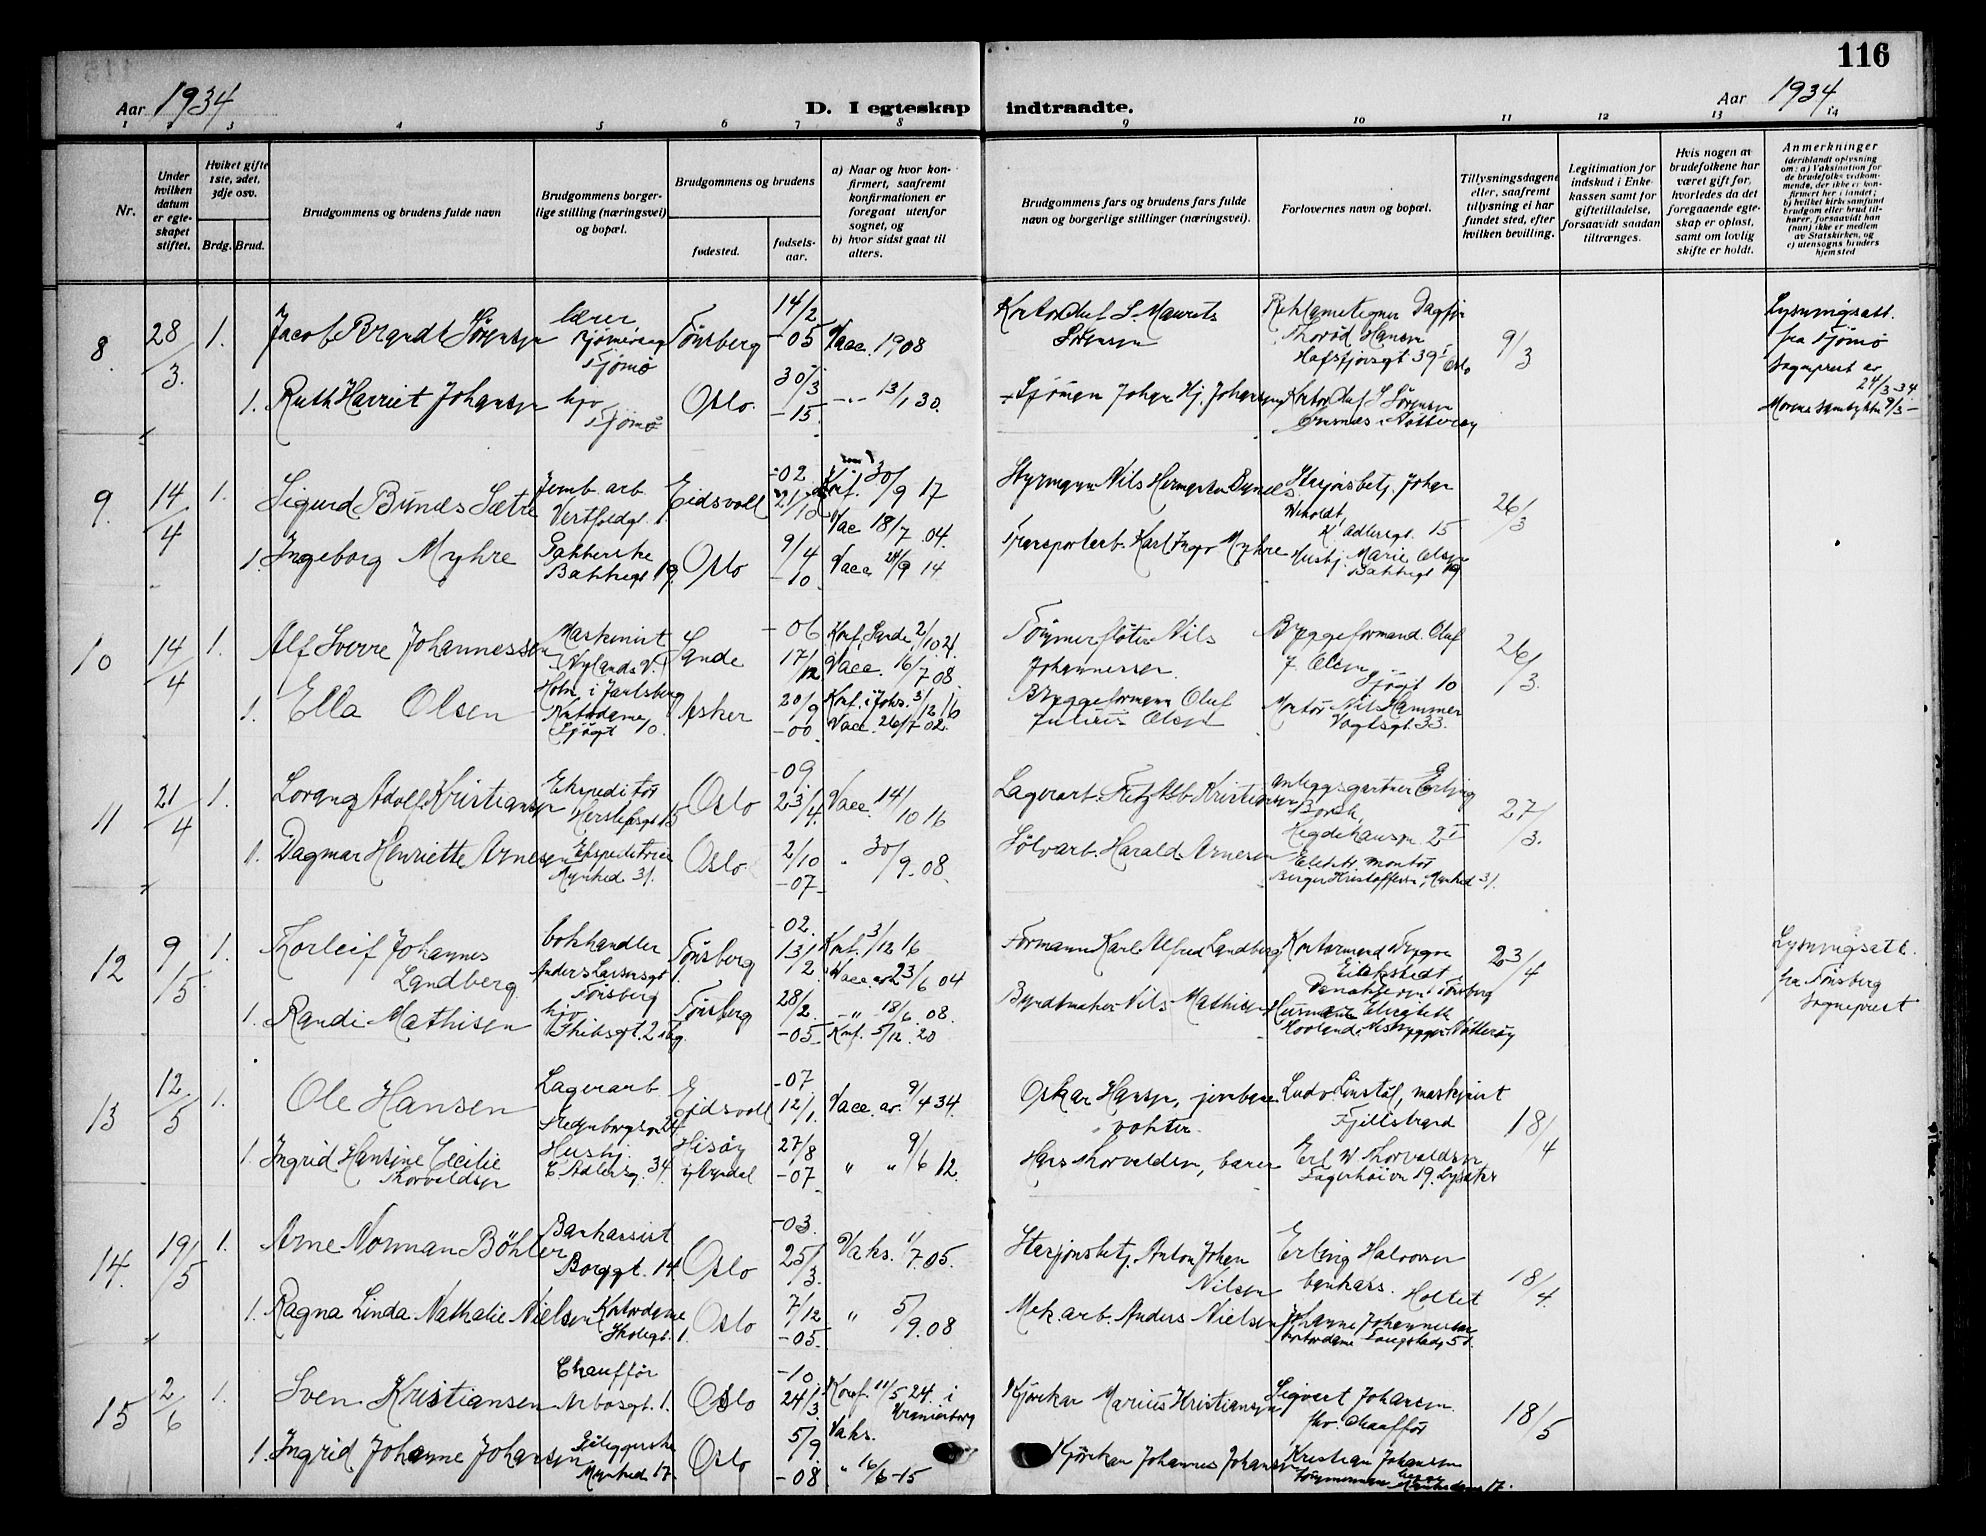 116
Aar 1934
D. I egteskap indtraadte.
Aar 1934
1 2 3 4 5 6 7 8 9 10 11 12 13 14
Nr.
Under hvilken datum er egteskapet stiftet.
Hvilket gifte 1ste, 2det, 3dje osv.
Brdg. Brud.
Brudgommens og brudens fulde navn
Brudgommens borgerlige stilling (næringsvei) og bopæl.
Brudgommens og brudens
fødested.
fødselsaar.
a) Naar og hvor konfirmert, saafremt konfirmationen er foregaat utenfor sognet, og
b) hvor sidst gaat til alters.
Brudgommens fars og brudens fars fulde navn og borgerlige stillinger (næringsvei).
Forlovernes navn og bopæl.
Tillysningsdagene eller, saafremt tillysning ei har fundet sted, efter hvilken bevilling.
Legitimation for indskud i Enkekassen samt for giftetilladelse, forsaavidt saadan tiltrænges.
Hvis nogen av brudefolkene har været gift før, hvorledes da det foregaaende egteskap er opløst, samt om lovlig skifte er holdt.
Anmerkninger
(deriblandt oplysning om: a) Vaksination for de brudefolks vedkommende, der ikke er konfirmert her i landet; b) hvilket kirkesamfund brudgom eller brud tilhører, forsaavidt han (hun) ikke er medlem av Statskirken, og c) utensogns bruders hjemsted
8 28/3. 1. Jacob Brandt Sørensen lærer Tjømø Tønsberg 14/2 -05 Vacc. 1908 Kontor Oluf S. Mauritz Sørensen Reklametegner Dagfin Thorød Hansen Hafsfjordsgt 39 Oslo 9/3 Lysningsatt. fra Tjømø Sogneprest er 24/3-34
1. Ruth Harriet Johansen hjv Tjømø Oslo 30/3 -15 -"- 13/1 30. Sjømann Johan Hj. Johansen Kontor Oluf S Sørensen Nøtterøy Morens samtykke 9/3
9. 14/4 1. Sigurd Bunes Sætre Jernb. arb. Vestfoldgt. Eidsvoll -02 21/10 Konf. 30/9 17 Vacc 18/7 04. Styrmann Nils Herman Bunes Stasjonsbetj. Johan Weholdt, K Adlersgt. 15 26/3
1. Ingeborg Myhre Pakkerske Bakkegt 19 Oslo 9/4 -10 Vacc 24/9 14 Transportarb. Karl Inge Myhre Hushj. Marie Olsen Bakkegt 19
10 14/4 1. Alf Sverre Johannessen Maskinist Nylands V. Holm i Jarlsberg Sande -06 17/12 Konf. Sande 2/10 21. Vacc. 16/7 08 Tømmerfløter Nils Johannessen Bryggeformand. Oluf J. Olsen Sjøgt 10 26/3.
1. Ella Olsen Kontordame Sjøgt 10. Asker 20/9 -00 Konf. i Johs. 3/12 16 Vacc. 26/7 02. Bryggeformann Oluf Julius Olsen Montør Nils Hammer Vogtsgt. 33.
11 21/4 1. Lorang Adolf Kristiansen Ekspeditør Herslebsgt 15 Oslo -09 23/4 Vacc. 14/10 16 Lagerarb. Fritz Alb Kristiansen Anleggsgartner Erling Borch, Hegdehaugsvn 2 I 27/3.
1. Dagmar Henriette Arnesen Ekspeditrise Mynked. 31. Oslo 2/10 -07 " 30/9. 08. Sølvarb. Harald Arnesen Elektr. montør Birger Kristoffersen, Munked 31.
12 9/5 1. Thorleif Johannes Landberg bokhandler Anders Larsensgt Tønsberg Tønsberg -02. 13/2 Konf. 3/12 16 Vacc. av 23/6 04 Formann Karl Alfred Landberg Kontormand Trygve Eichstedt Tønsberg 23/4 Lysningsatt. fra Tønsberg Sogneprest
1. Randi Mathisen hjv Tønsberg 28/2. -05 -"- 18/6 08. Konf. 5/12. 20 Byråmaker Nils Mathisen Elisabeth Nøtterøy
13 12/5 1. Ole Hansen Lagerarb Stensborgsgt 24 Eidsvoll -07 12/1. Vacc. av. 9/4 34. Oskar Hansen, jernbanevokter. Ludv. Linstøl, maskinist Fjellstrand 18/4
1. Ingrid Hansine Cecilie Thorvaldsen Hushj. C. Adlersg. 34. Hisøy v/Arendal 27/8 -07 " " 9/6 12. Hans Thorvaldsen, bærer Erl W Thorvaldsen Fagerhøivn 19. Lysaker
14. 19/5 1. Arne Norman Böhler Bankassist Borggt. 14 Oslo -03. 25/3. Vaks. 1/7 05. Stasjonsbetj. Anton Johan Nilsen Erling Halvorsen bankass. Holtet 18/4.
1. Ragna Linda Nathalie Nielsen Kontordame Skolegt. 1. Oslo 7/12 -05 " 5/9. 08 Mek. arb. Anders Nielsen Johanne Johannessen kontordame
15 2/6 1. Sven Kristiansen Chauffør Nebosgt. 1. Oslo -10 24/3. Konf. 11/5 24 i Uranienborg Vaks. Kjørekar Marius Kristiansen Sigvart Johansen. chauffør 18/5
1. Ingrid Johanne Johansen Munked 17. Oslo 5/9 -08 " 16/6-15 Kjørekar Johannes Johansen Kristian Johansen 17.